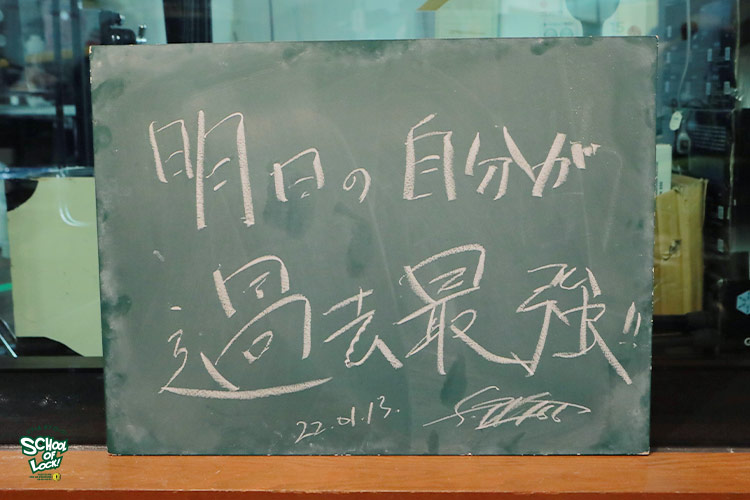 明日の自分が
過去最強!!
22.01.13.
SCHOOL
OF
LOCK!